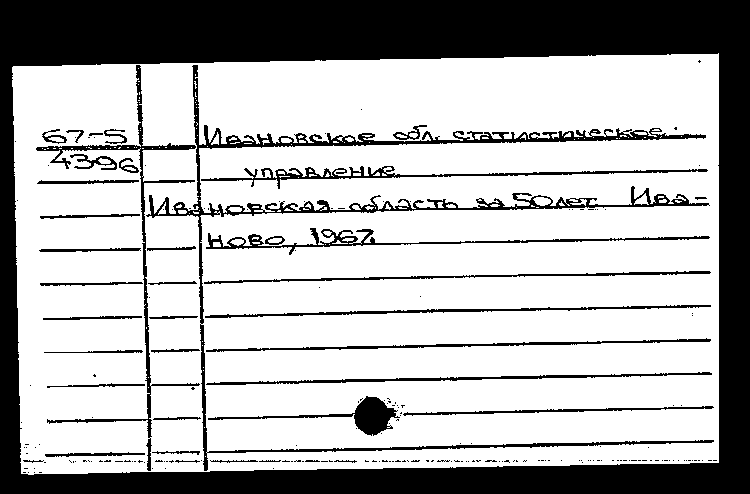 67-5 Ивановское обл. статистическое
4396 управление
Ивановская область за 50 лет. Ива-
ново, 1967.